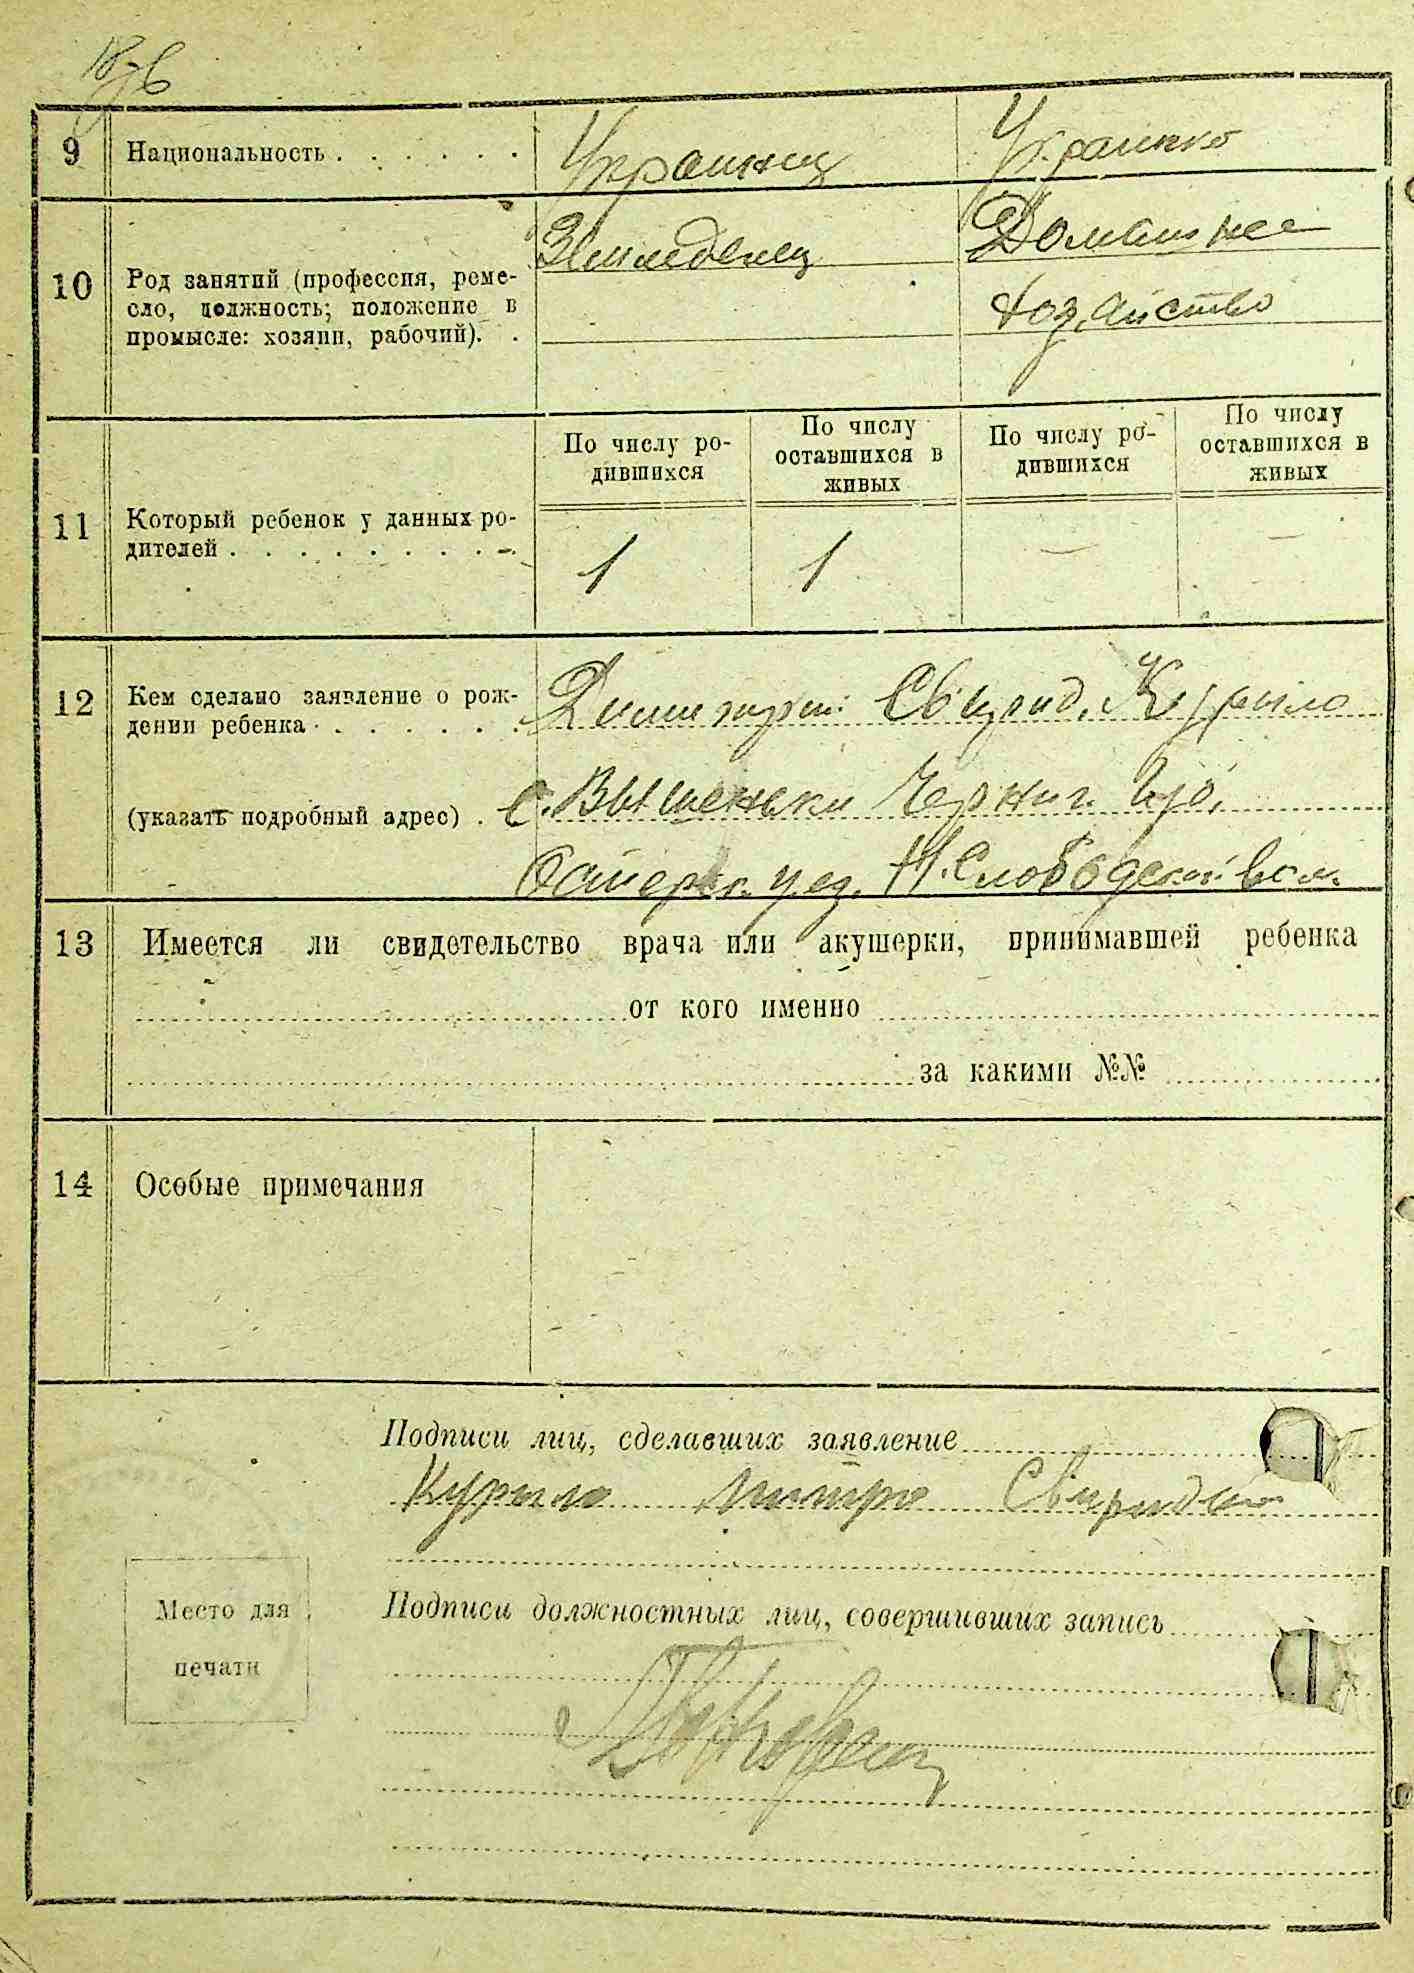 9 Национальность . . . . . . Украинец Украинка
10 Род занятий (профессия, реме-
сло, должность; положение в
промысле: хозяин, рабочий). .
Земледелец
Домашнее
хозяйство
11 Который ребенок у данных ро-
дителей . . . . . . . . . .
По числу ро-
дившихся
По числу
оставшихся в
живых
По числу ро-
дившихся
По числу
оставшихся в
живых
1 1 — —
12 Кем сделано заявление о рож-
дении ребенка . . . . . . .
Димитрий Свирид. Курило
(указать подробный адрес) . с. Вышеньки Черниг. губ.
Остерск. уез. Н. Слободской вол.
13 Имеется ли свидетельство врача или акушерки, принимавшей ребенка
от кого именно
за какими №№
14 Особые примечания
Подписи лиц, сделавших заявление
Курило Митро Свиридов
Место для
печати
Подписи должностных лиц, совершивших запись